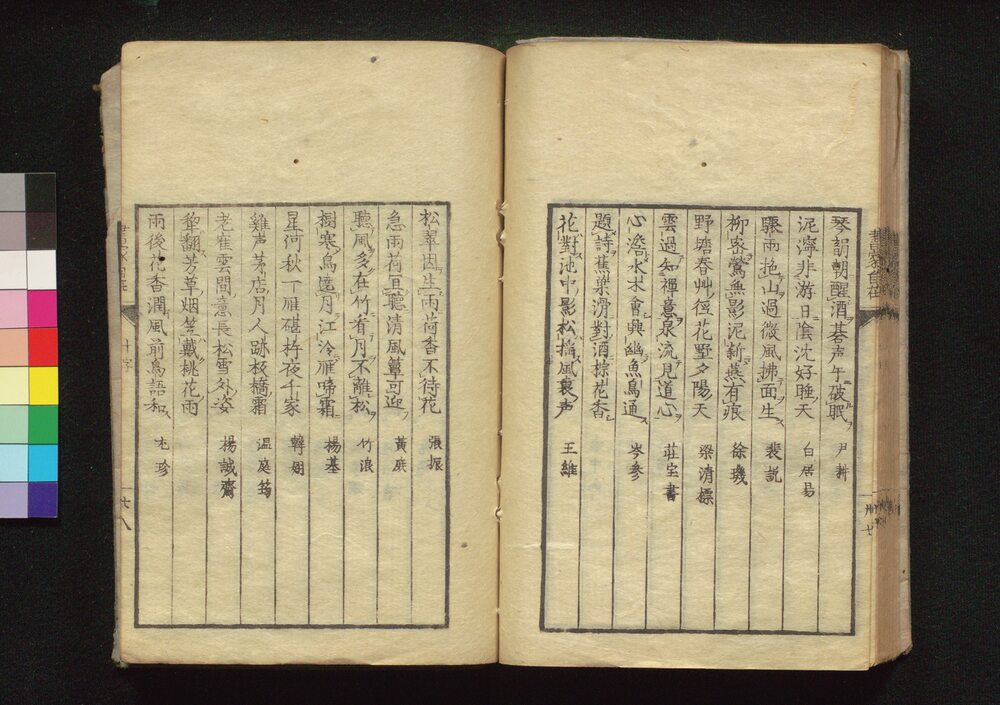 琴韻朝醒酒碁声午破眠 尹耕
泥濘非游日陰沈好睡天 白居易
驟雨拖山過微風拂面生 裴説
柳密鶯無影泥新燕有痕 徐璣
野塘春艸徑花墅夕陽天 梁清標
雲過知禅意泉流見道心 荘室書
心澹水木會興幽魚鳥通 岑参
題詩蕉葉滑對酒棕花香
花對池中影松搖風裏声 王維
松翠因生雨荷香不待花 張振
急雨荷宜聽清風簟可迎 黃庶
聽風多在竹看月不離松 竹浪
樹寒鳥還月江冷雁啼霜 楊基
星河秋一雁碪杵夜千家 韓翃
雞声茅店月人跡板橋霜 温庭筠
老崔雲間意長松雪外姿 楊誠齋
犂翻芳草烟笠戴桃花雨
雨後花香潤風前鳥語和 尤珍
十字